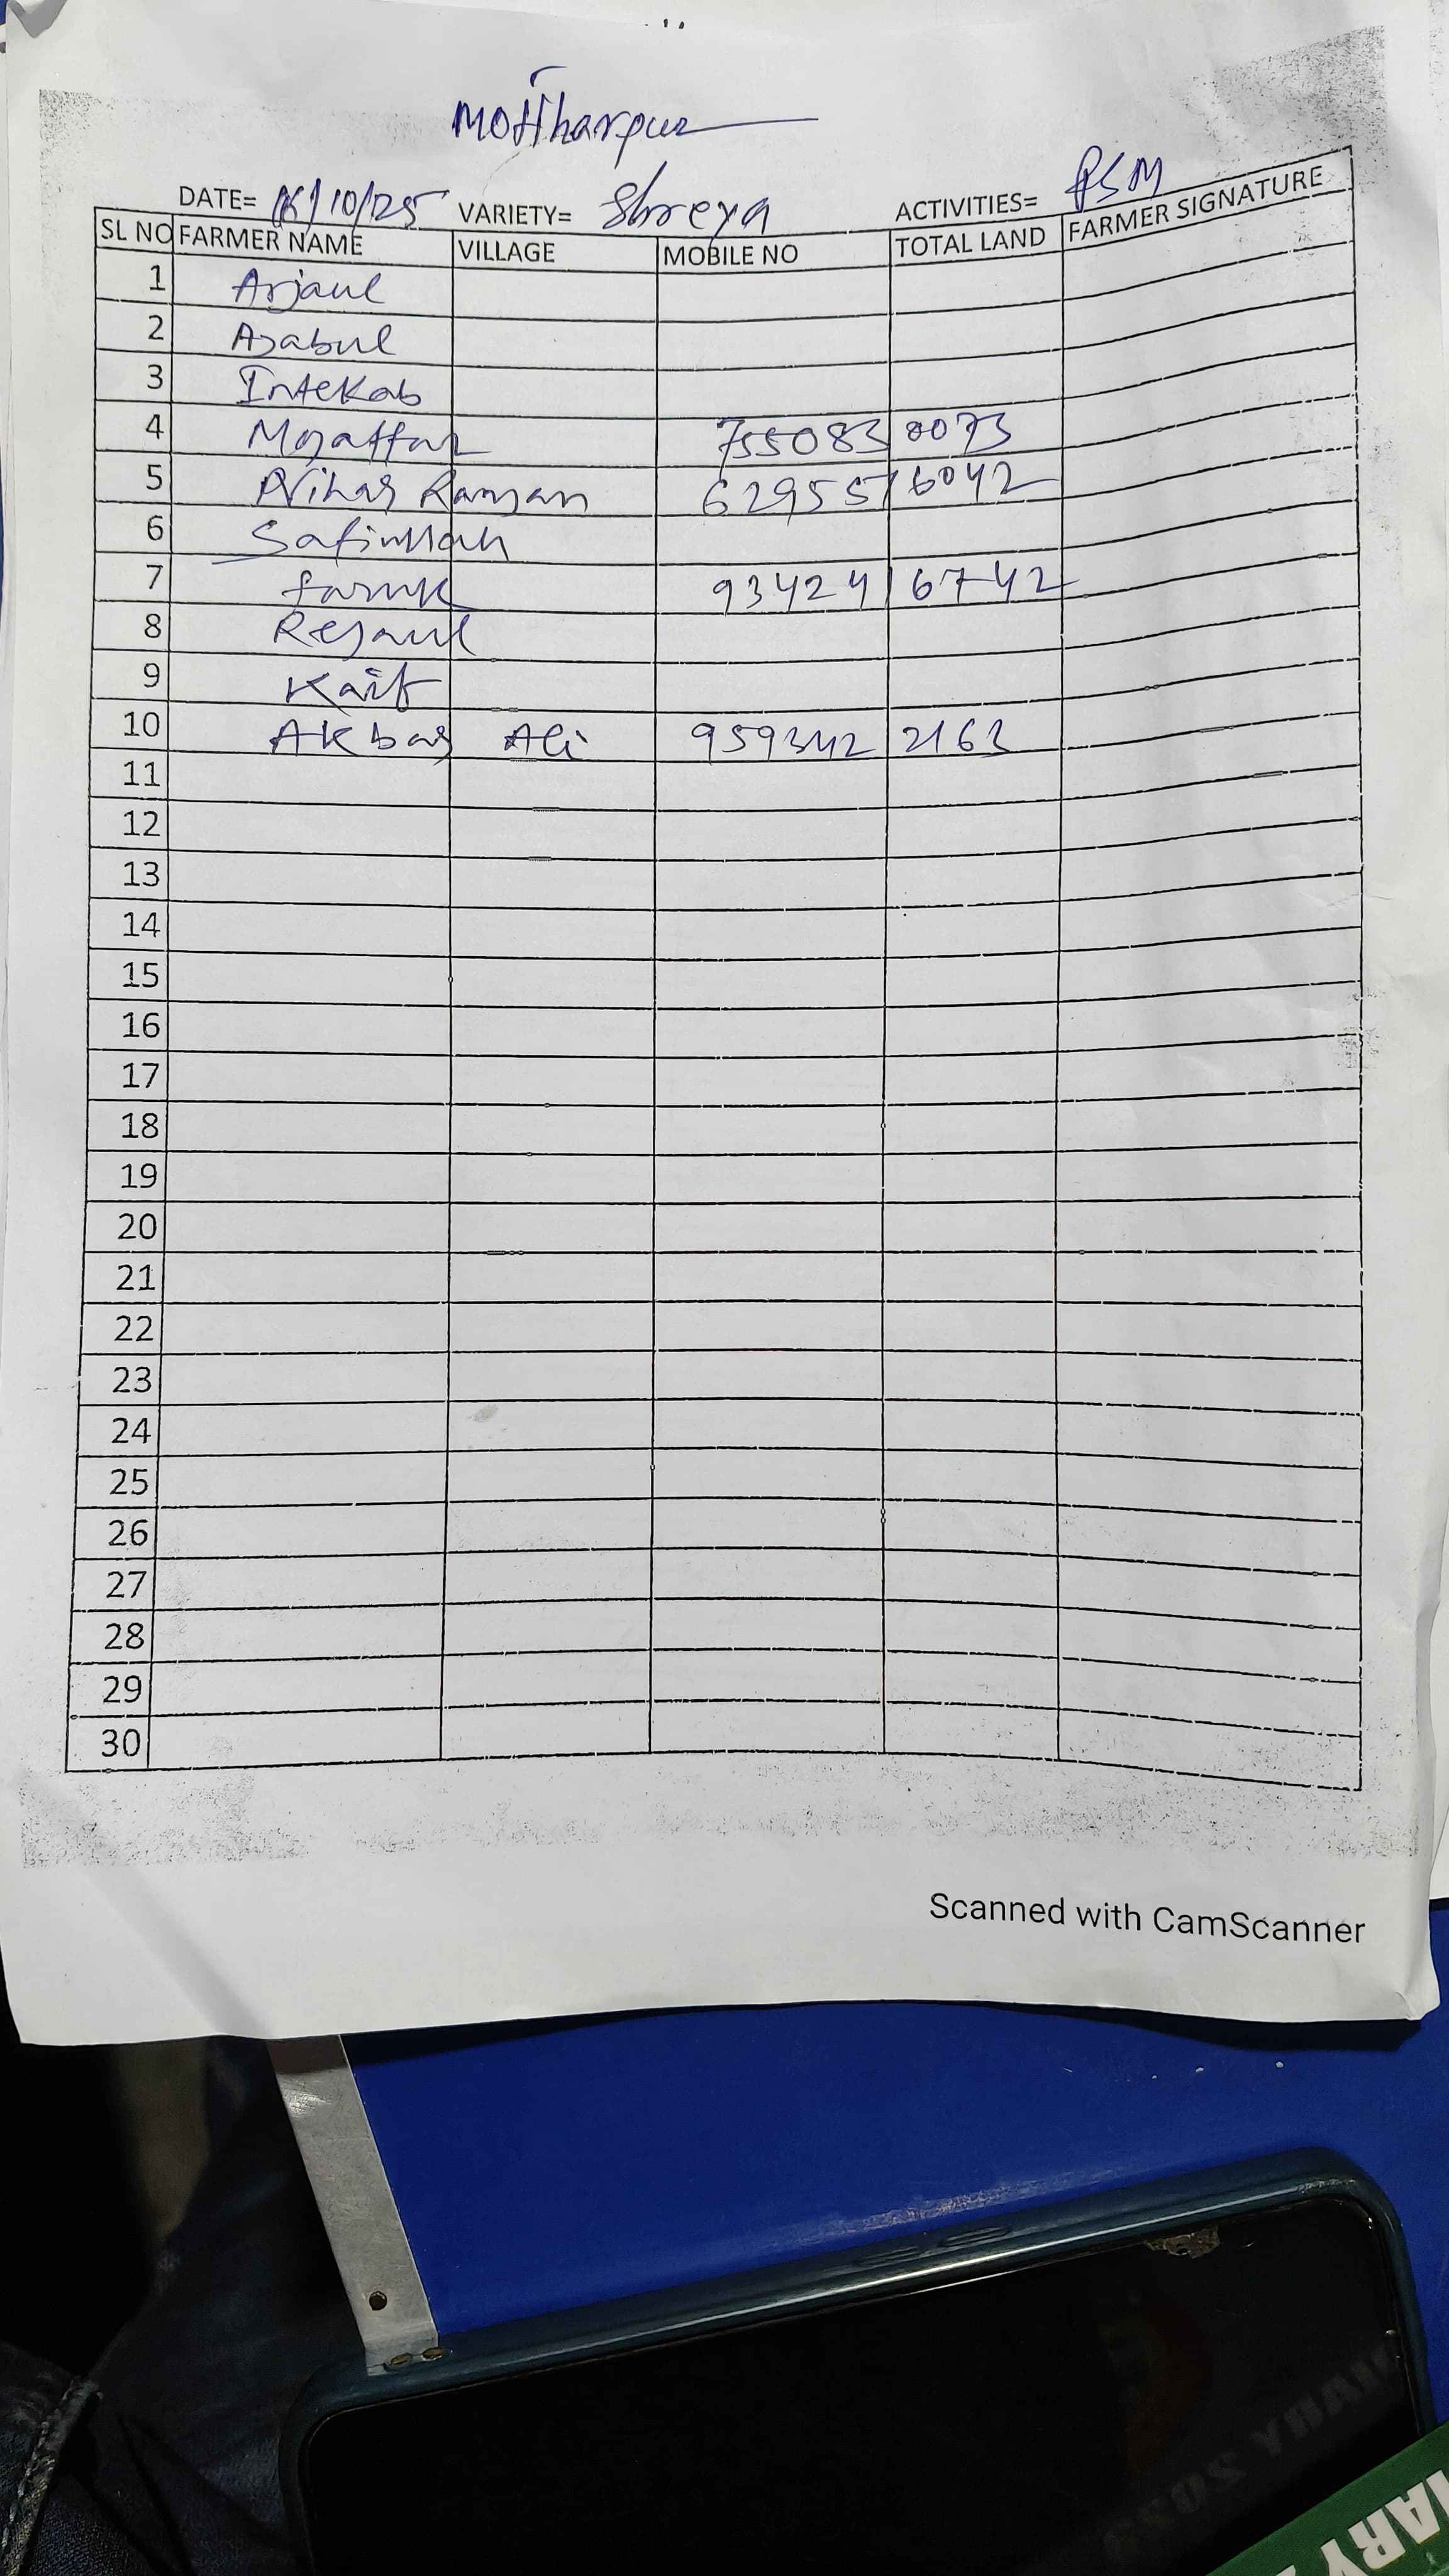 Motiharpur
DATE= 16/10/25 VARIETY= Shreya ACTIVITIES= PSM
SL NO FARMER NAME VILLAGE MOBILE NO TOTAL LAND FARMER SIGNATURE
1 Arjaul
2 Ajabul
3 Intekab
4 Mojaffar 7550830073
5 Nihar Ranjan 6295576042
6 Safiullah
7 faruk 9342416742
8 Rejaul
9 Kaif
10 Akbar Ali 9593422163
11
12
13
14
15
16
17
18
19
20
21
22
23
24
25
26
27
28
29
30
Scanned with CamScanner